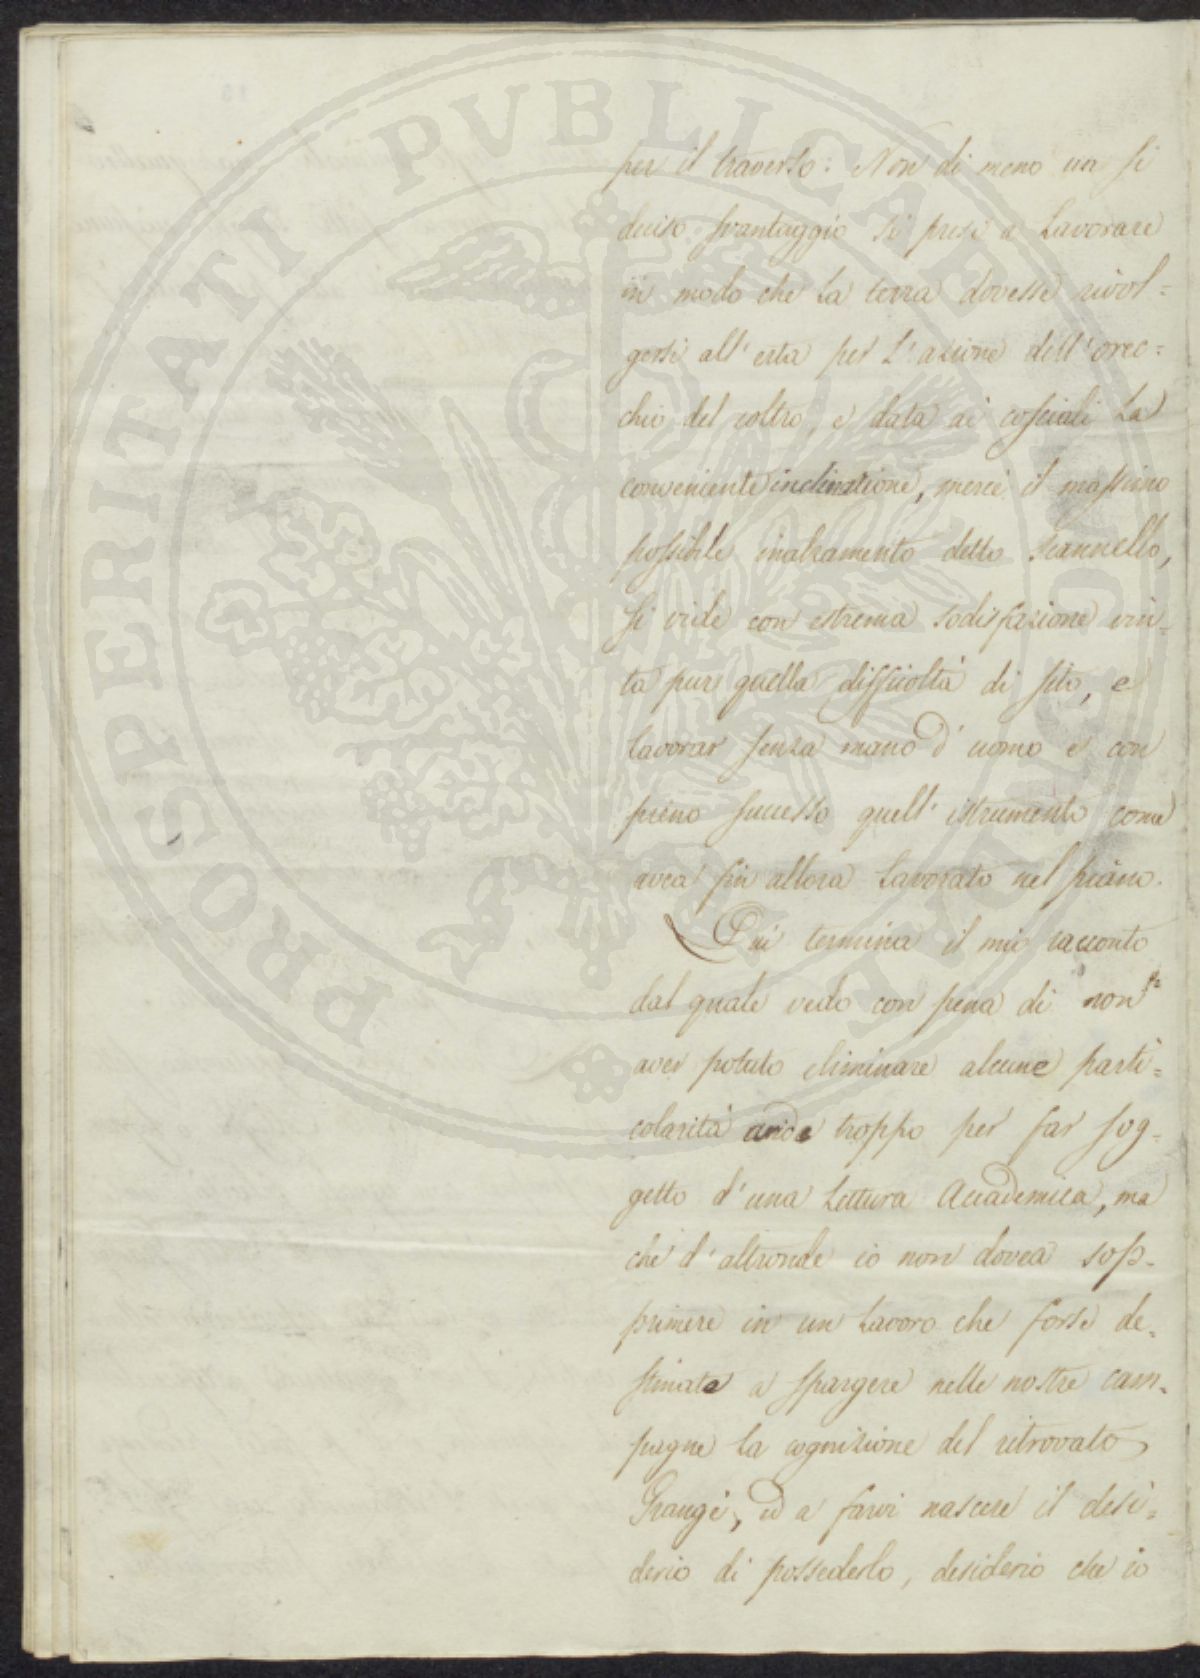 PROSPERITATI PVBLICAE AVGENDAE
per il traverso: Non di meno un sì
deciso svantaggio si prese a Lavorare
in modo che La terra dovesse rivol=
gersi all'erta per L'azione dell'orec=
chio del coltro, e data ai cosciali La
conveniente inclinazione, mercè il massimo
possibile inalzamento dello scannello,
si vide con estrema sodisfazione vin=
ta pur quella difficoltà di sito, e
Lavorar senza mano d'uomo e con
pieno successo quell'istrumento come
avea fin allora Lavorato nel piano.
Qui termina il mio racconto
dal quale vedo con pena di non
aver potuto eliminare alcune parti=
colarità aride troppo per far sog=
getto d'una Lettura Accademica, ma
che d'altronde io non dovea sop=
primere in un Lavoro che forse de=
stinato a spargere nelle nostre cam=
pagne La cognizione del ritrovato
Grangé, ed a farvi nascere il desi=
derio di possederlo, desiderio che io